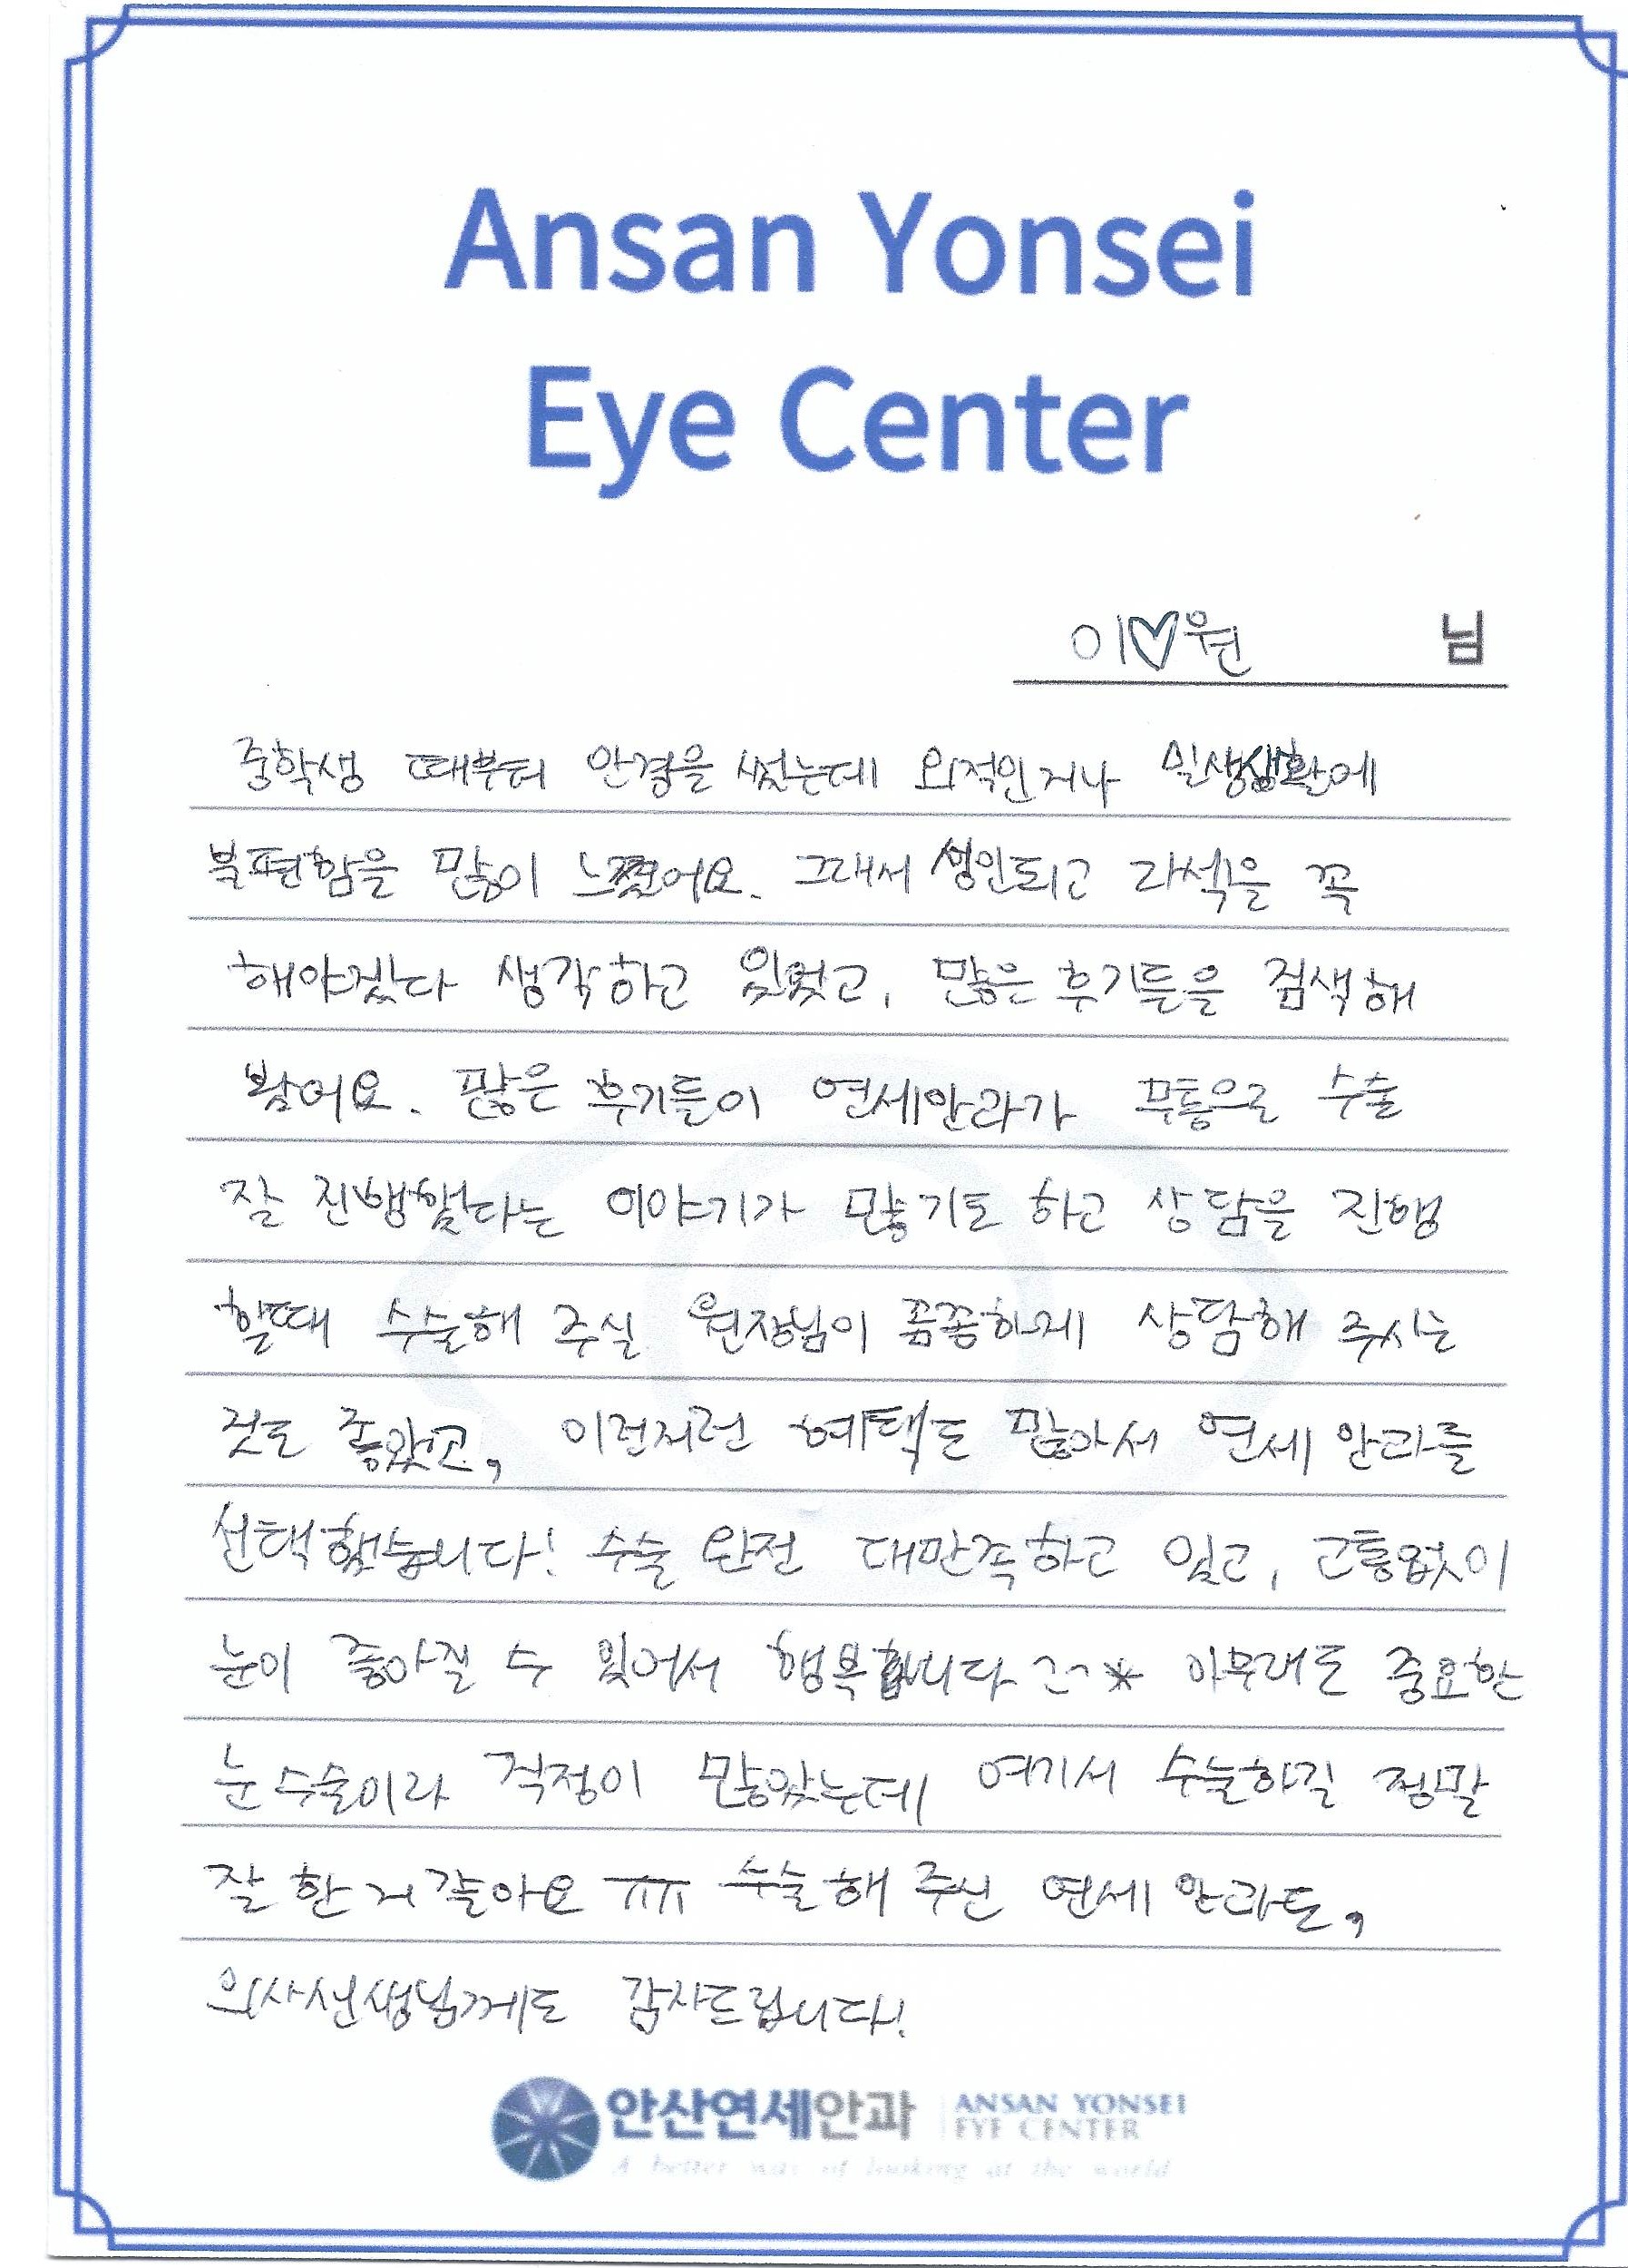 Ansan Yonsei
Eye Center
이♡원 님
중학생 때부터 안경을 썼는데 외적인거나 일생생활에
불편함을 많이 느꼈어요. 그래서 성인되고 라섹을 꼭
해야겠다 생각하고 있었고, 많은 후기들을 검색해
봤어요. 많은 후기들이 연세안과가 무통으로 수술
잘 진행했다는 이야기가 많기도 하고 상담을 진행
할때 수술해 주실 원장님이 꼼꼼하게 상담해 주시는
것도 좋았고, 이런저런 혜택도 많아서 연세 안과를
선택했습니다! 수술 완전 대만족하고 있고, 고통없이
눈이 좋아질 수 있어서 행복합니다 ^^* 아무래도 중요한
눈수술이라 걱정이 많았는데 여기서 수술하길 정말
잘 한거 같아요 ㅠㅠ 수술해 주신 연세 안과도,
의사선생님께도 감사드립니다!
안산연세안과 ANSAN YONSEI
EYE CENTER
A better way of looking at the world